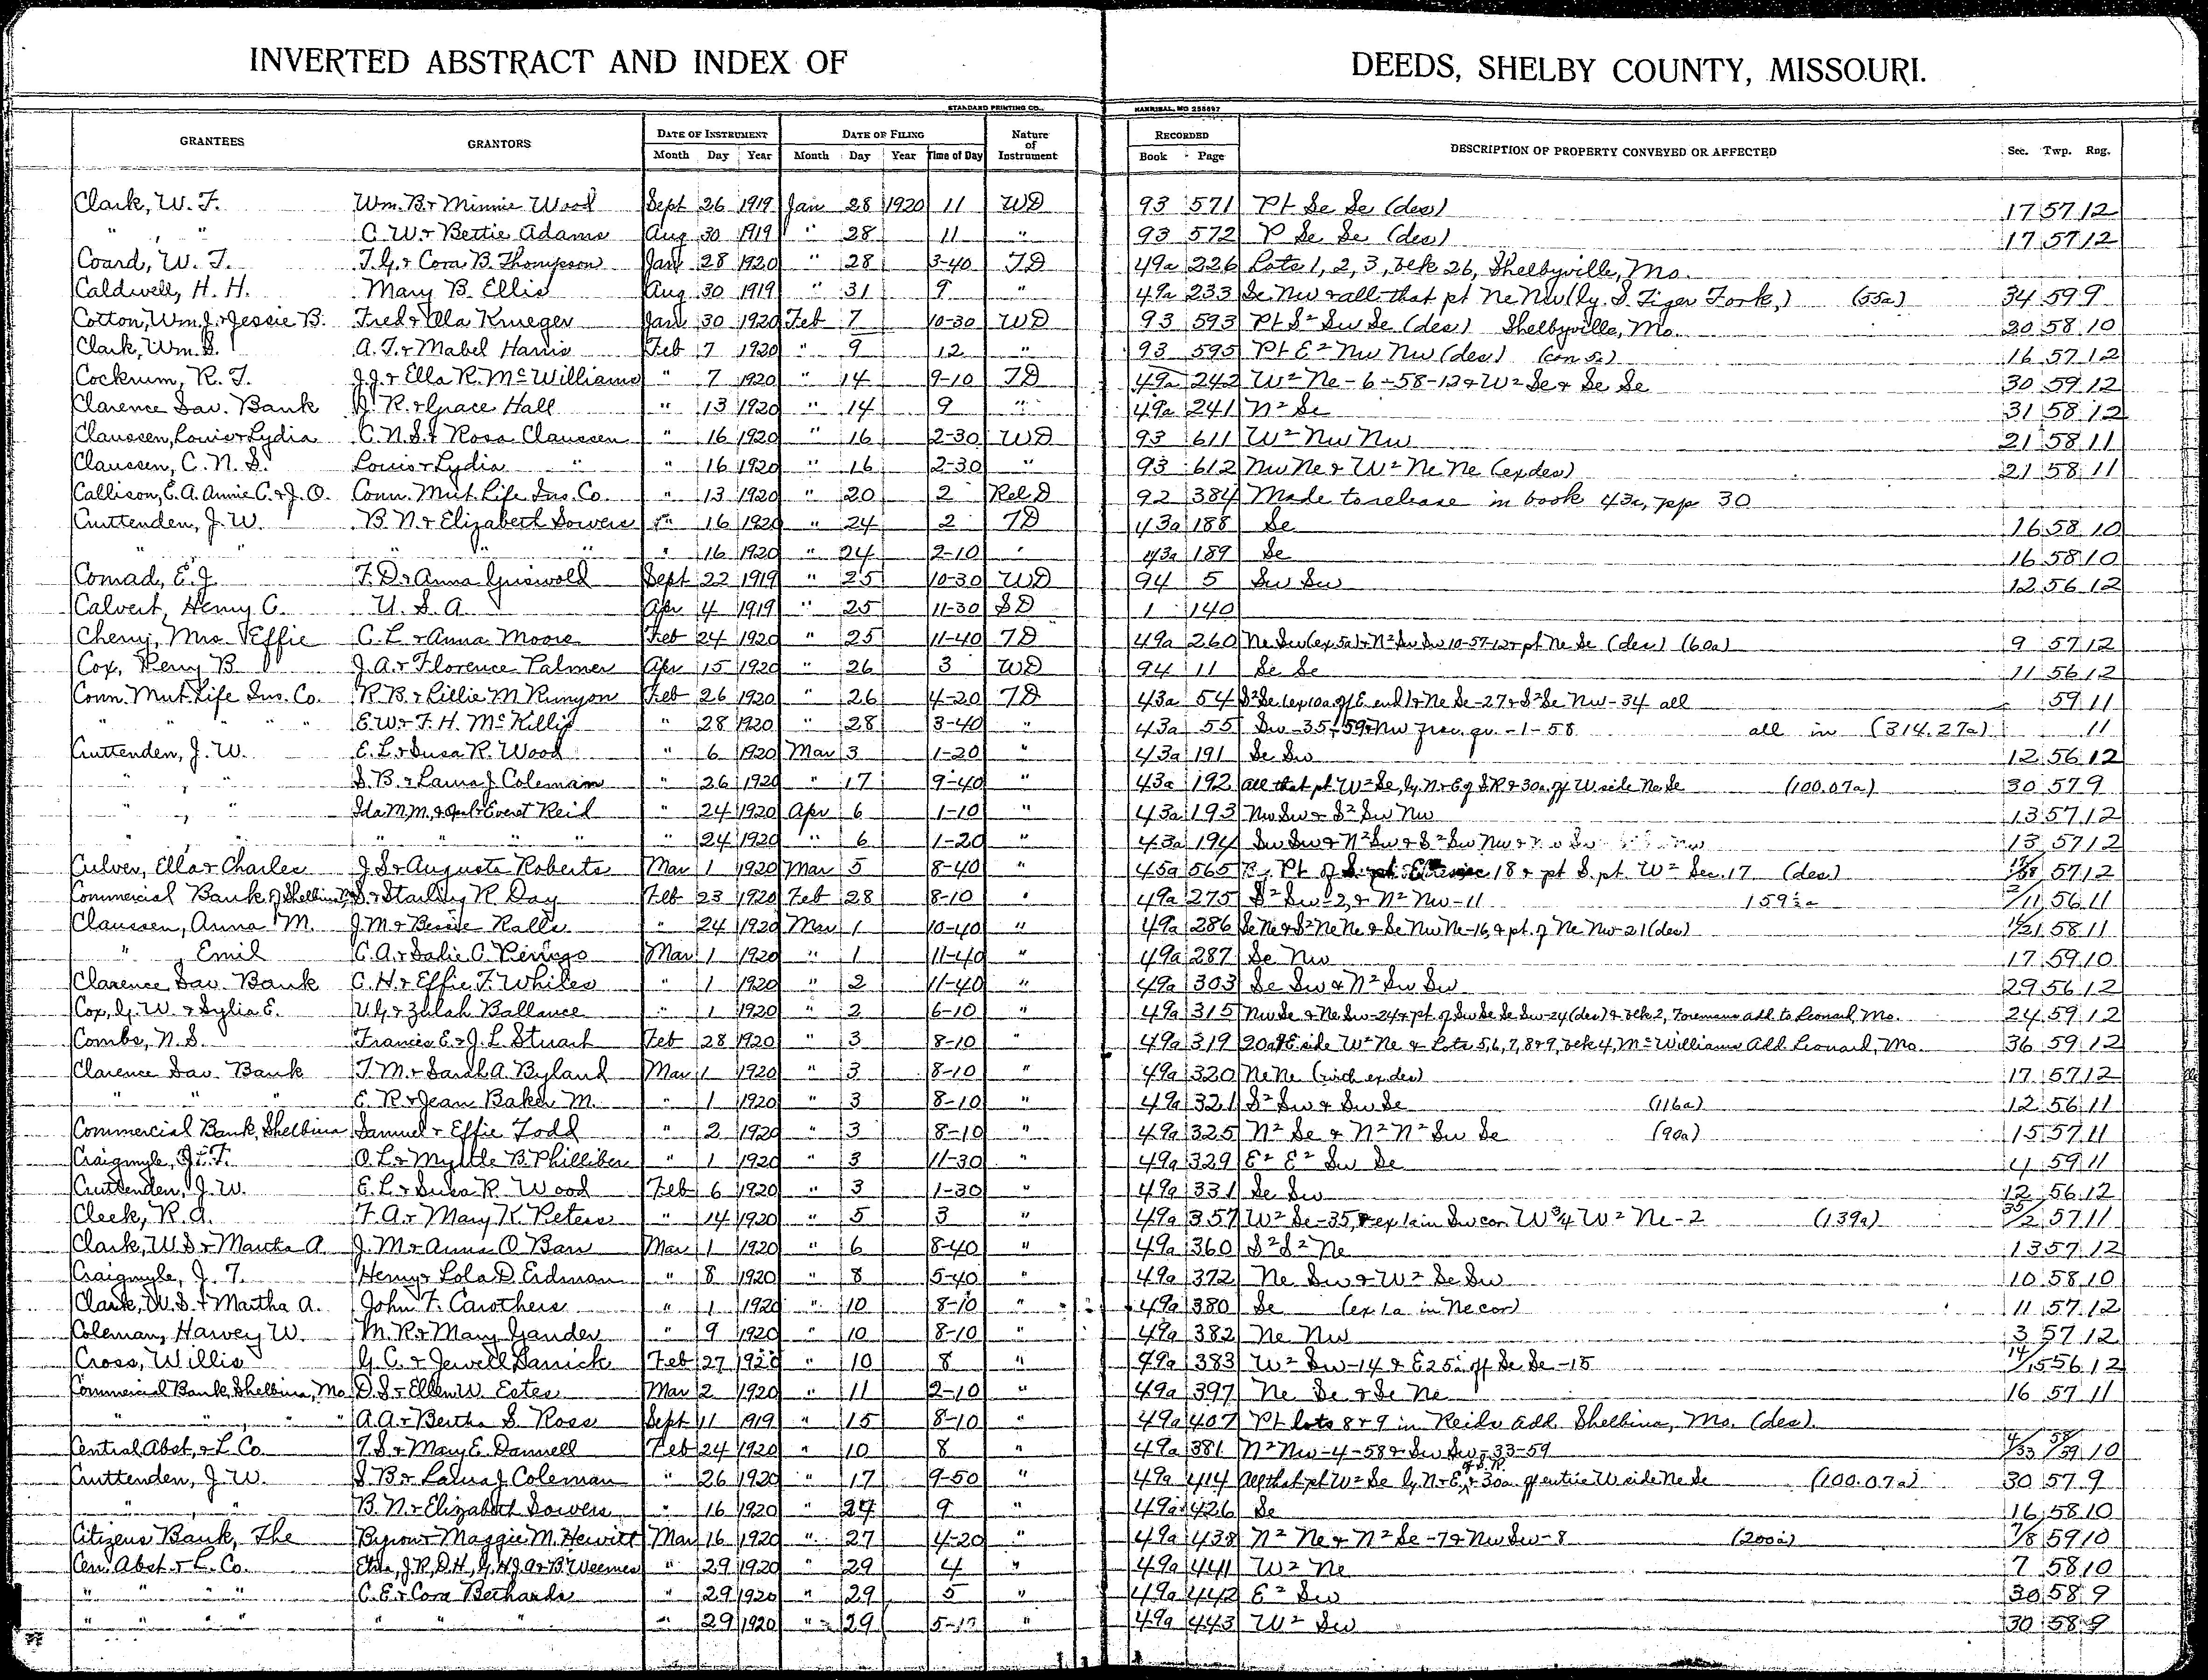 INVERTED ABSTRACT AND INDEX OF DEEDS, SHELBY COUNTY, MISSOURI.
STANDARD PRINTING CO., HANNIBAL, MO 258897
GRANTEES GRANTORS DATE OF INSTRUMENT Month Day Year DATE OF FILING Month Day Year Time of Day Nature of Instrument RECORDED Book Page DESCRIPTION OF PROPERTY CONVEYED OR AFFECTED Sec. Twp. Rng.
Clark, W. F. Wm. B. & Minnie Wood Sept 26 1919 Jan 28 1920 11 WD 93 571 Pt Se Se (des) 17 57 12
" " C. W. & Bettie Adams Aug 30 1919 " 28 11 " 93 572 P Se Se (des) 17 57 12
Coard, W. T. T. G. & Cora B. Thompson Jan 28 1920 " 28 3-40 TD 49a 226 Lots 1, 2, 3, blk 26, Shelbyville, Mo.
Caldwell, H. H. Mary B. Ellis Aug 30 1919 " 31 9 " 49a 233 Se Nw & all that pt Ne Nw (ly. S. Tiger Fork,) (55a) 34 59 9
Cotton, Wm. J. & Jessie B. Fred & Ola Krueger Jan 30 1920 Feb 7 10-30 WD 93 593 Pt S² Sw Se (des) Shelbyville, Mo. 20 58 10
Clark, Wm. S. A. T. & Mabel Harris Feb 7 1920 " 9 12 " 93 595 Pt E² Nw Nw (des) (con 5a) 16 57 12
Cockrum, R. T. J. J. & Ella R. McWilliams " 7 1920 " 14 9-10 TD 49a 242 W² Ne - 6 - 58 - 12 & W² Se & Se Se 30 59 12
Clarence Sav. Bank J. R. & Grace Hall " 13 1920 " 14 9 " 49a 241 N² Se 31 58 12
Claussen, Louis & Lydia C. N. S. & Rosa Claussen " 16 1920 " 16 2-30 WD 93 611 W² Nw Nw 21 58 11
Claussen, C. N. S. Louis & Lydia " " 16 1920 " 16 2-30 " 93 612 Nw Ne & W² Ne Ne (ex des) 21 58 11
Callison, E. A. Annie C. & J. O. Conn. Mut. Life Ins. Co. " 13 1920 " 20 2 Rel D 92 384 Made to release in book 43a, pp 30
Cruttenden, J. W. B. N. & Elizabeth Sowers " 16 1920 " 24 2 TD 43a 188 Se 16 58 10
" " " " " " 16 1920 " 24 2-10 " 43a 189 Se 16 58 10
Conrad, E. J. F. D. & Anna Griswold Sept 22 1919 " 25 10-30 WD 94 5 Sw Sw 12 56 12
Calvert, Henry C. U. S. A. Apr 4 1919 " 25 11-30 SD 1 140
Cherry, Mrs. Effie C. L. & Anna Moore Feb 24 1920 " 25 11-40 TD 49a 260 Ne Sw (ex 5a) & N² Sw Sw 10-57-12 & pt Ne Se (des) (60a) 9 57 12
Cox, Perry B. J. A. & Florence Palmer Apr 15 1920 " 26 3 WD 94 11 Se Se 11 56 12
Conn. Mut. Life Ins. Co. R. B. & Lillie M. Runyon Feb 26 1920 " 26 4-20 TD 43a 54 S² Se (ex 10a off E end) & Ne Se - 27 & S² Se Nw - 34 all 59 11
" " " " " E. W. & F. H. McKillip " 28 1920 " 28 3-40 " 43a 55 Sw - 35 - 59 & Nw frac. qr. - 1 - 58 all in (314.27a) 11
Cruttenden, J. W. E. L. & Susa R. Wood " 6 1920 Mar 3 1-20 " 43a 191 Se Sw 12 56 12
" " S. B. & Laura J. Coleman " 26 1920 " 17 9-40 " 43a 192 all that pt W² Se, ly. N & E of S.R & 30a off W side Ne Se (100.07a) 30 57 9
" " Ida M, M, & Everet Reid " 24 1920 Apr 6 1-10 " 43a 193 Nw Sw & S² Sw Nw 13 57 12
" " " " " " 24 1920 " 6 1-20 " 43a 194 Sw Sw & N² Sw & S² Sw Nw 13 57 12
Culver, Ella & Charles J. S. & Augusta Roberts Mar 1 1920 Mar 5 8-40 " 45a 565 Pt of 18 & pt S. pt. W² Sec. 17 (des) 17/18 57 12
Commercial Bank of Shelbina, Mo S. & Starling R. Day Feb 23 1920 Feb 28 8-10 " 49a 275 S² Sw - 2, & N² Nw - 11 159½a 2/11 56 11
Claussen, Anna M. J. M. & Bessie Ralls " 24 1920 Mar 1 10-40 " 49a 286 Se Ne & S² Ne Ne & Se Nw Ne - 16, & pt. of Ne Nw - 21 (des) 16/21 58 11
" , Emil C. A. & Salie C. Perrigo Mar 1 1920 " 1 11-40 " 49a 287 Se Nw 17 59 10
Clarence Sav. Bank C. H. & Effie F. Whiles " 1 1920 " 2 11-40 " 49a 303 Se Sw & N² Sw Sw 29 56 12
Cox, G. W. & Sylia E. U. G. & Zulah Ballance " 1 1920 " 2 6-10 " 49a 315 Nw Se & Ne Sw - 24 & pt of Sw Se Se Sw - 24 (des) & blk 2, Foremans add to Leonard, Mo. 24 59 12
Combs, N. S. Francis E. & J. L. Stuart Feb 28 1920 " 3 8-10 " 49a 319 20a off E side W² Ne & Lots 5, 6, 7, 8 & 9, blk 4, McWilliams Add. Leonard, Mo. 36 59 12
Clarence Sav. Bank T. M. & Sarah A. Byland Mar 1 1920 " 3 8-10 " 49a 320 Ne Ne (with ex des) 17 57 12
" " " E. R. & Jean Baker M. " 1 1920 " 3 8-10 " 49a 321 S² Sw & Sw Se (116a) 12 56 11
Commercial Bank, Shelbina Samuel & Effie Todd " 2 1920 " 3 8-10 " 49a 325 N² Se & N² N² Sw Se (90a) 15 57 11
Craigmyle, J. T. O. L. & Myrtle B. Philliber " 1 1920 " 3 11-30 " 49a 329 E² E² Sw Se 4 59 11
Cruttenden, J. W. E. L. & Susa R. Wood Feb 6 1920 " 3 1-30 " 49a 331 Se Sw 12 56 12
Cleek, R. A. F. A. & Mary K. Peters " 14 1920 " 5 3 " 49a 357 W² Se - 35, ex 1a in Sw cor. W ¾ W² Ne - 2 (139a) 35/2 57 11
Clark, W. S. & Martha A. J. M. & Anna O. Barr Mar 1 1920 " 6 8-40 " 49a 360 S² S² Ne 13 57 12
Craigmyle, J. T. Henry & Lola D. Erdman " 8 1920 " 8 5-40 " 49a 372 Ne Sw & W² Se Sw 10 58 10
Clark, W. S. & Martha A. John F. Carothers " 1 1920 " 10 8-10 " 49a 380 Se (ex 1a in Ne cor) 11 57 12
Coleman, Harvey W. M. R. & Mary Gander " 9 1920 " 10 8-10 " 49a 382 Ne Nw 3 57 12
Cross, Willis G. C. & Jewell Barrick Feb 27 1920 " 10 8 " 49a 383 W² Sw - 14 & E 25a off Se Se - 15 14/15 56 12
Commercial Bank, Shelbina, Mo D. S. & Ellen W. Estes Mar 2 1920 " 11 2-10 " 49a 397 Ne Se & Se Ne 16 57 11
" " " " A. A. & Bertha S. Ross Sept 11 1919 " 15 8-10 " 49a 407 Pt lots 8 & 9 in Reids add. Shelbina, Mo. (des). 
Central Abst. & L. Co. T. S. & Mary E. Dannell Feb 24 1920 " 10 8 " 49a 381 N² Nw - 4 - 58 & Sw Sw - 33 - 59 4/33 58/59 10
Cruttenden, J. W. S. B. & Laura J. Coleman " 26 1920 " 17 9-50 " 49a 414 All that pt W² Se ly. N & E of S.R. & 30a off entire W side Ne Se (100.07a) 30 57 9
" " B. N. & Elizabeth Sowers " 16 1920 " 24 9 " 49a 426 Se 16 58 10
Citizens Bank, The Byron & Maggie M. Hewitt Mar 16 1920 " 27 4-20 " 49a 438 N² Ne & N² Se - 7 & Nw Sw - 8 (200a) 7/8 59 10
Cen. Abst. & L. Co. Etha, J. R, D. H, G. H, J. A & B. Weemes " 29 1920 " 29 4 " 49a 441 W² Ne 7 58 10
" " " " C. E. & Cora Bethards " 29 1920 " 29 5 " 49a 442 E² Sw 30 58 9
" " " " " " " " 29 1920 " 29 " 49a 443 W² Sw 30 58 9